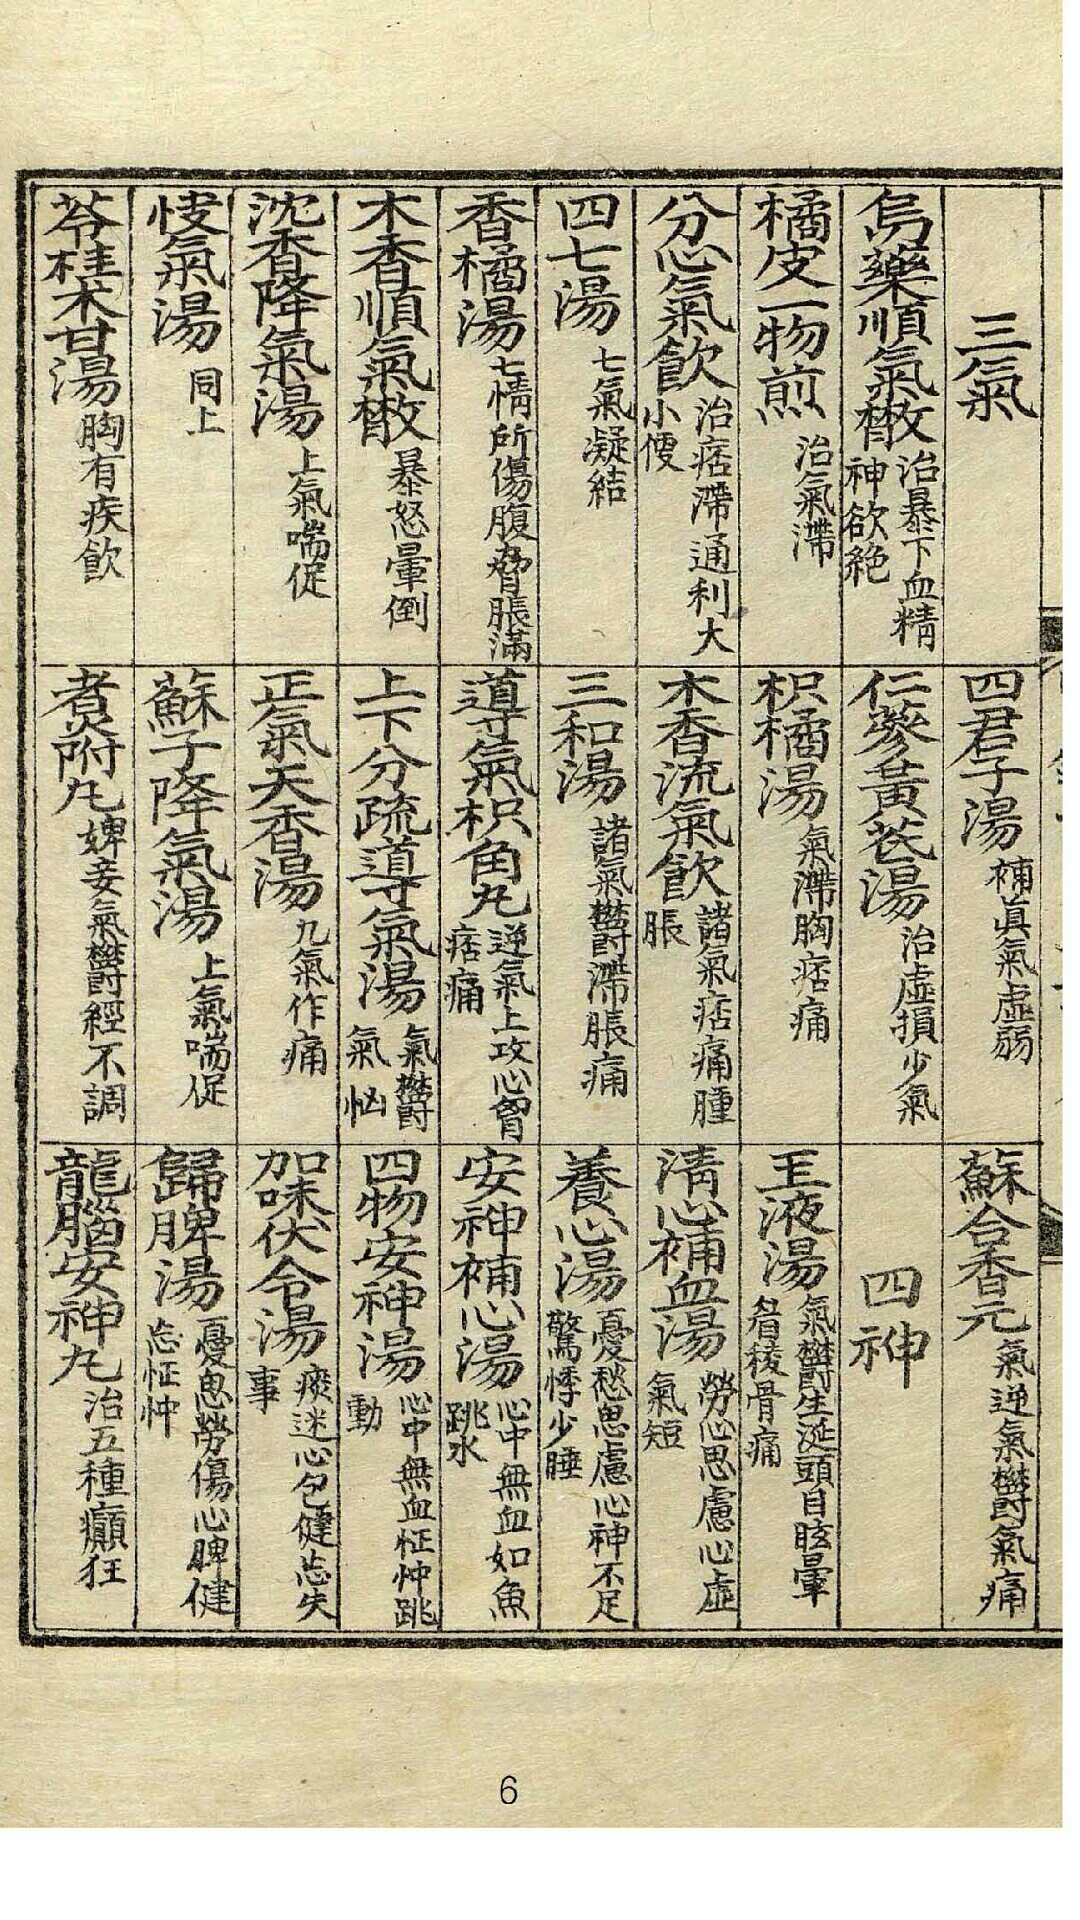 三氣
烏藥順氣散 治暴下血精神欲絶
橘皮一物煎 治氣滯
分心氣飮 治痞滯通利大小便
四七湯 七氣凝結
香橘湯 七情所傷腹脅脹滿
木香順氣散 暴怒暈倒
沈香降氣湯 上氣喘促
快氣湯 同上
苓桂朮甘湯 胸有痰飮
四君子湯 補眞氣虛弱
仁蔘黃芪湯 治虛損少氣
枳橘湯 氣滯胸痞痛
木香流氣飮 諸氣痞痛腫脹
三和湯 諸氣欝滯脹痛
導氣枳角丸 逆氣上攻心胷痞痛
上下分疏導氣湯 氣欝氣惱
正氣天香湯 九氣作痛
蘇子降氣湯 上氣喘促
煮附丸 婢妾氣欝經不調
蘇合香元 氣逆氣欝氣痛
四神
王液湯 氣欝生涎頭目眩暈眉稜骨痛
淸心補血湯 勞心思慮心虛氣短
養心湯 憂愁思慮心神不足驚悸少睡
安神補心湯 心中無血如魚跳水
四物安神湯 心中無血怔忡跳動
加味伏令湯 痰迷心包健忘失事
歸脾湯 憂思勞傷心脾健忘怔忡
龍腦安神丸 治五種癲狂
6